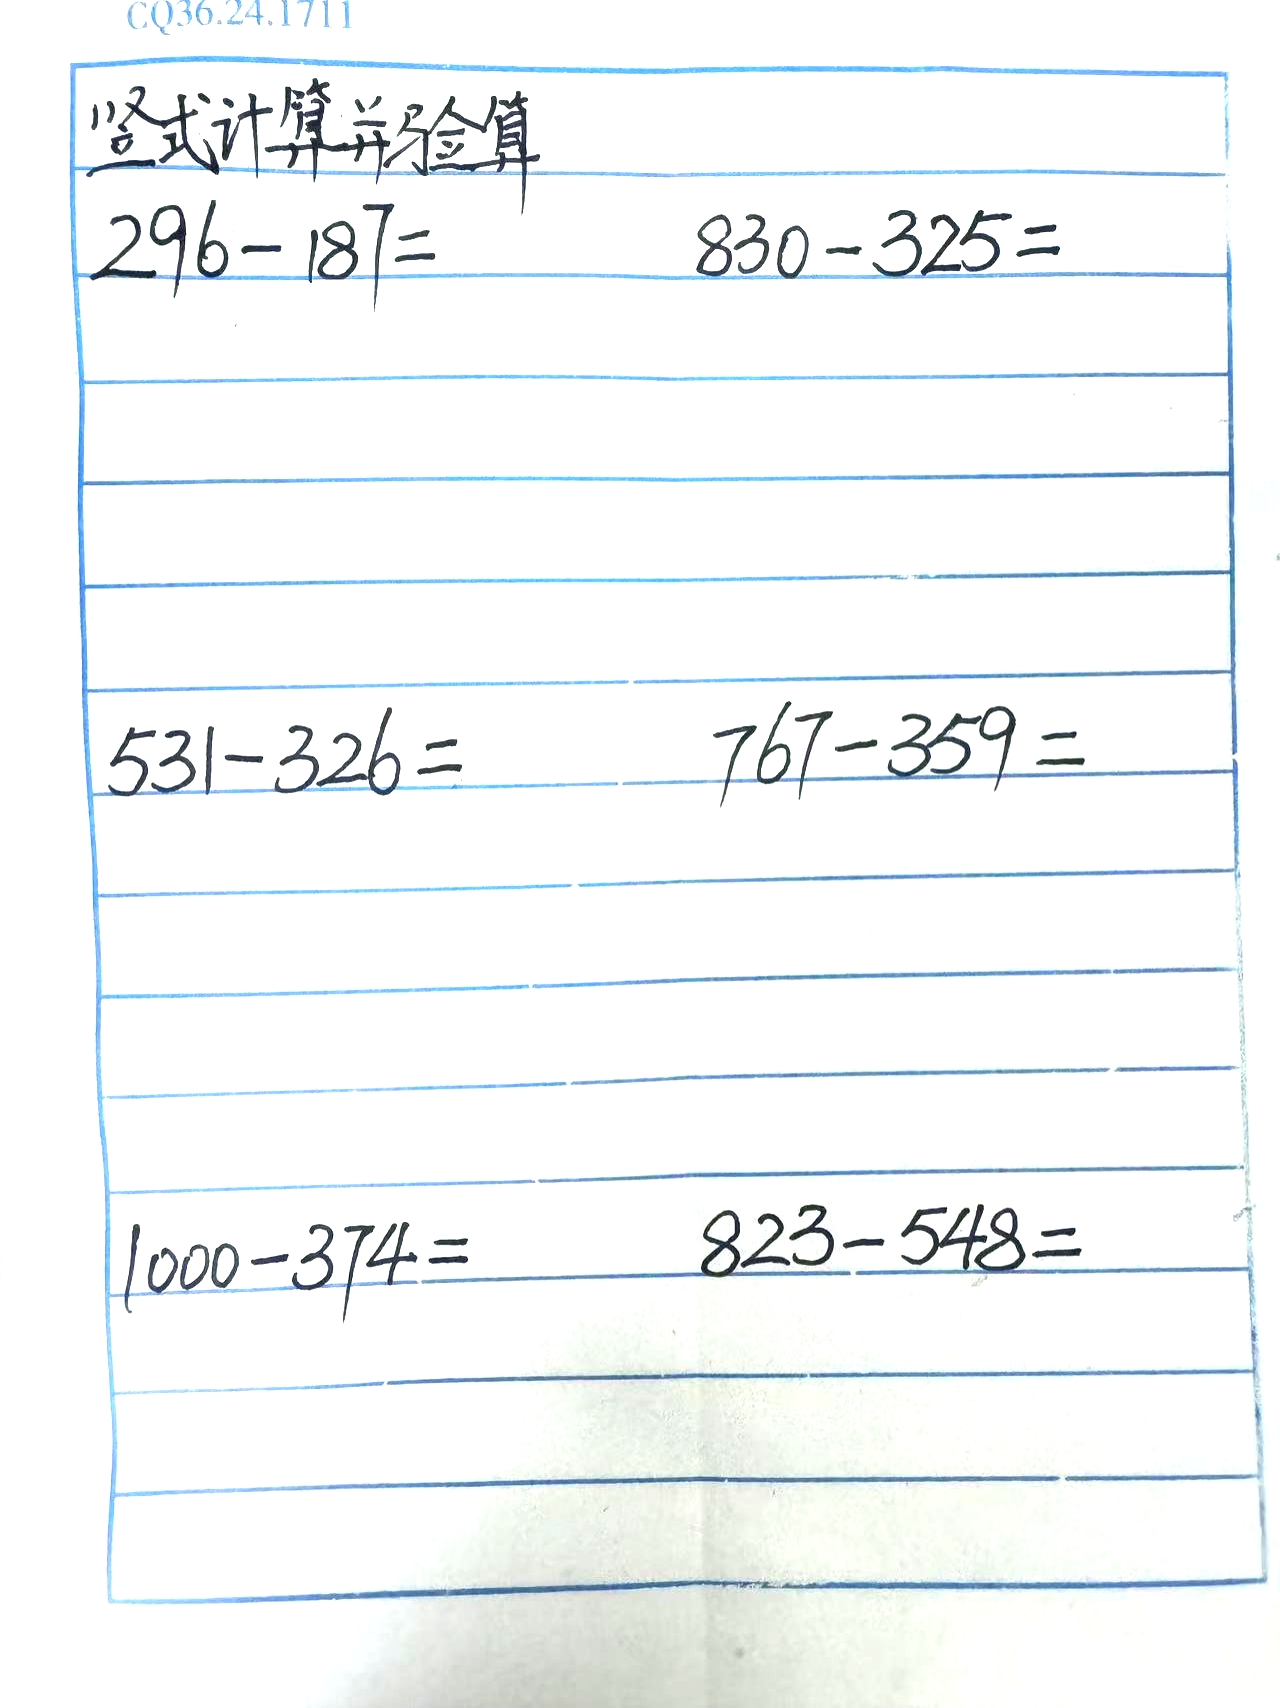 CQ36.24.1711
竖式计算并验算
296-187= 830-325=
531-326= 767-359=
1000-374= 823-548=